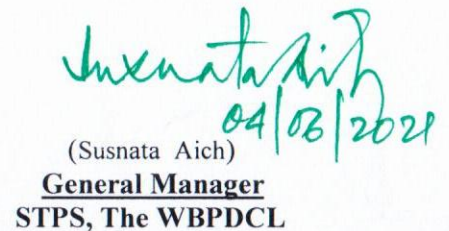 Susnata Aich
04/06/2021
(Susnata Aich)
General Manager
STPS, The WBPDCL